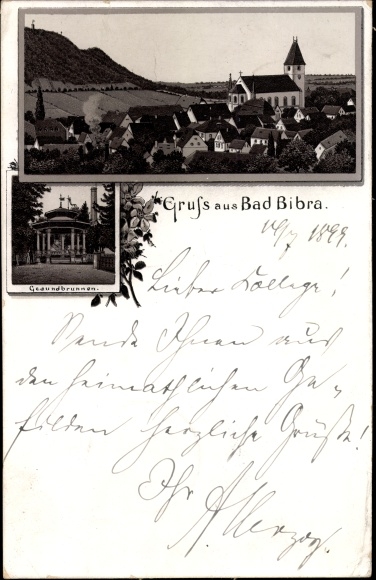 Gruss aus Bad Bibra.
Gesundbrunnen.
16/7 1899.
Lieber College!
Sende Ihnen aus
den heimathlichen Ge-
filden herzliche Grüße!
Ihr
A Herzog.